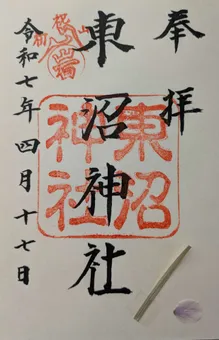 奉拝
東沼神社
令和七年四月十七日
東沼
神社